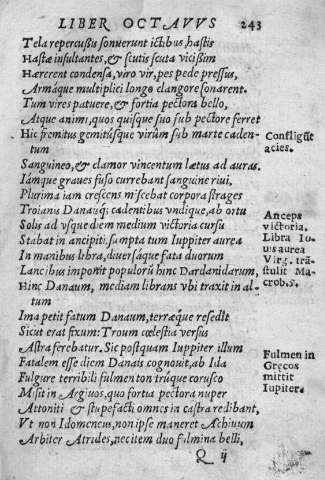 LIBER OCTAVVS 243
Tela repercußis sonuerunt ictibus, hastis
Hastæ insultantes, & scutis scuta vicißim
Hærerent condensa, viro vir, pes pede pressus,
Armáque multiplici longe clangore sonarent.
Tum vires patuere, & fortia pectora bello,
Atque animi, quos quisque suo sub pectore ferret
Hic fremitus gemitúsque virûm sub marte caden-
tum
Confligūt
acies.
Sanguineo, & clamor vincentum lætus ad auras.
Iámque graues fuso currebant sanguine riui,
Plurima iam crescens miscebat corpora strages
Troianis Danaisq; cadentibus vndique, ab ortu
Solis ad vsque diem medium victoria cursu
Stabat in ancipiti, sumpta tum Iuppiter aurea
In manibus libra, diuersáque fata duorum
Lancibus imponit populorū hinc Dardanidarum,
Hinc Danaum, mediam librans vbi traxit in al-
tum
Anceps
victoria.
Libra Io-
uis aurea
Virg. trā-
stulit Ma-
crobiᵒ.
Ima petit fatum Danaum, terræque resedit
Sicut erat fixum: Troum cœlestia versus
Astra ferebatur. Sic postquam Iuppiter illum
Fatalem esse diem Danais cognouit, ab Ida
Fulgure terribili fulmen ton trúque corusco
Misit in Argiuos, quo fortia pectora nuper
Attoniti & stupefacti omnes in castra redibant,
Vt non Idomeneus, non ipse maneret Achiuum
Arbiter Atrides, nec item duo fulmina belli,
Fulmen in
Grecos
mittit
Iupiter.
Q ij